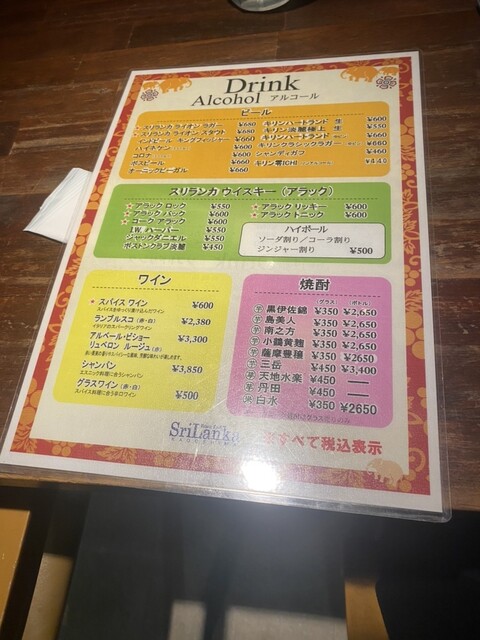 Drink
Alcohol アルコール
ビール
スリランカ ライオン ラガー ¥680
スリランカ ライオン スタウト ¥680
インドビール キングフィッシャー ¥660
ハイネケン ¥600
コロナ ¥600
ボスビール ¥660
オーニックビーガル ¥660
キリンハートランド 生 ¥600
キリン淡麗極上 生 ¥550
キリンハートランド ¥660
キリンクラシックラガー ¥660
シャンディガフ ¥460
キリン零ICHI ¥440
スリランカ ウイスキー（アラック）
アラック ロック ¥550
アラック バック ¥600
コーク アラック ¥600
I.W. ハーパー ¥550
ジャックダニエル ¥550
ボストンクラブ淡麗 ¥450
アラック リッキー ¥600
アラック トニック ¥600
ハイボール
ソーダ割り／コーラ割り
ジンジャー割り ¥500
ワイン
スパイス ワイン ¥600
スパイスをゆっくり漬け込んだワイン
ランブルスコ（赤・白） ¥2,380
イタリアのスパークリングワイン
アルベール・ビショー
リュペロン ルージュ（赤） ¥3,300
シャンパン ¥3,850
エスニック料理に合うシャンパン
グラスワイン（赤・白） ¥500
スパイス料理に合う辛口ワイン
焼酎
グラス ボトル
芋 黒伊佐錦 ¥350 ¥2,650
芋 島美人 ¥350 ¥2,650
芋 南之方 ¥350 ¥2,650
芋 小鶴黄麹 ¥350 ¥2,650
芋 薩摩豊穣 ¥350 ¥2650
芋 三岳 ¥450 ¥3,400
芋 天地水楽 ¥450 ―
芋 丹田 ¥450 ―
米 白水 ¥350 ¥2650
SriLanka
すべて税込表示